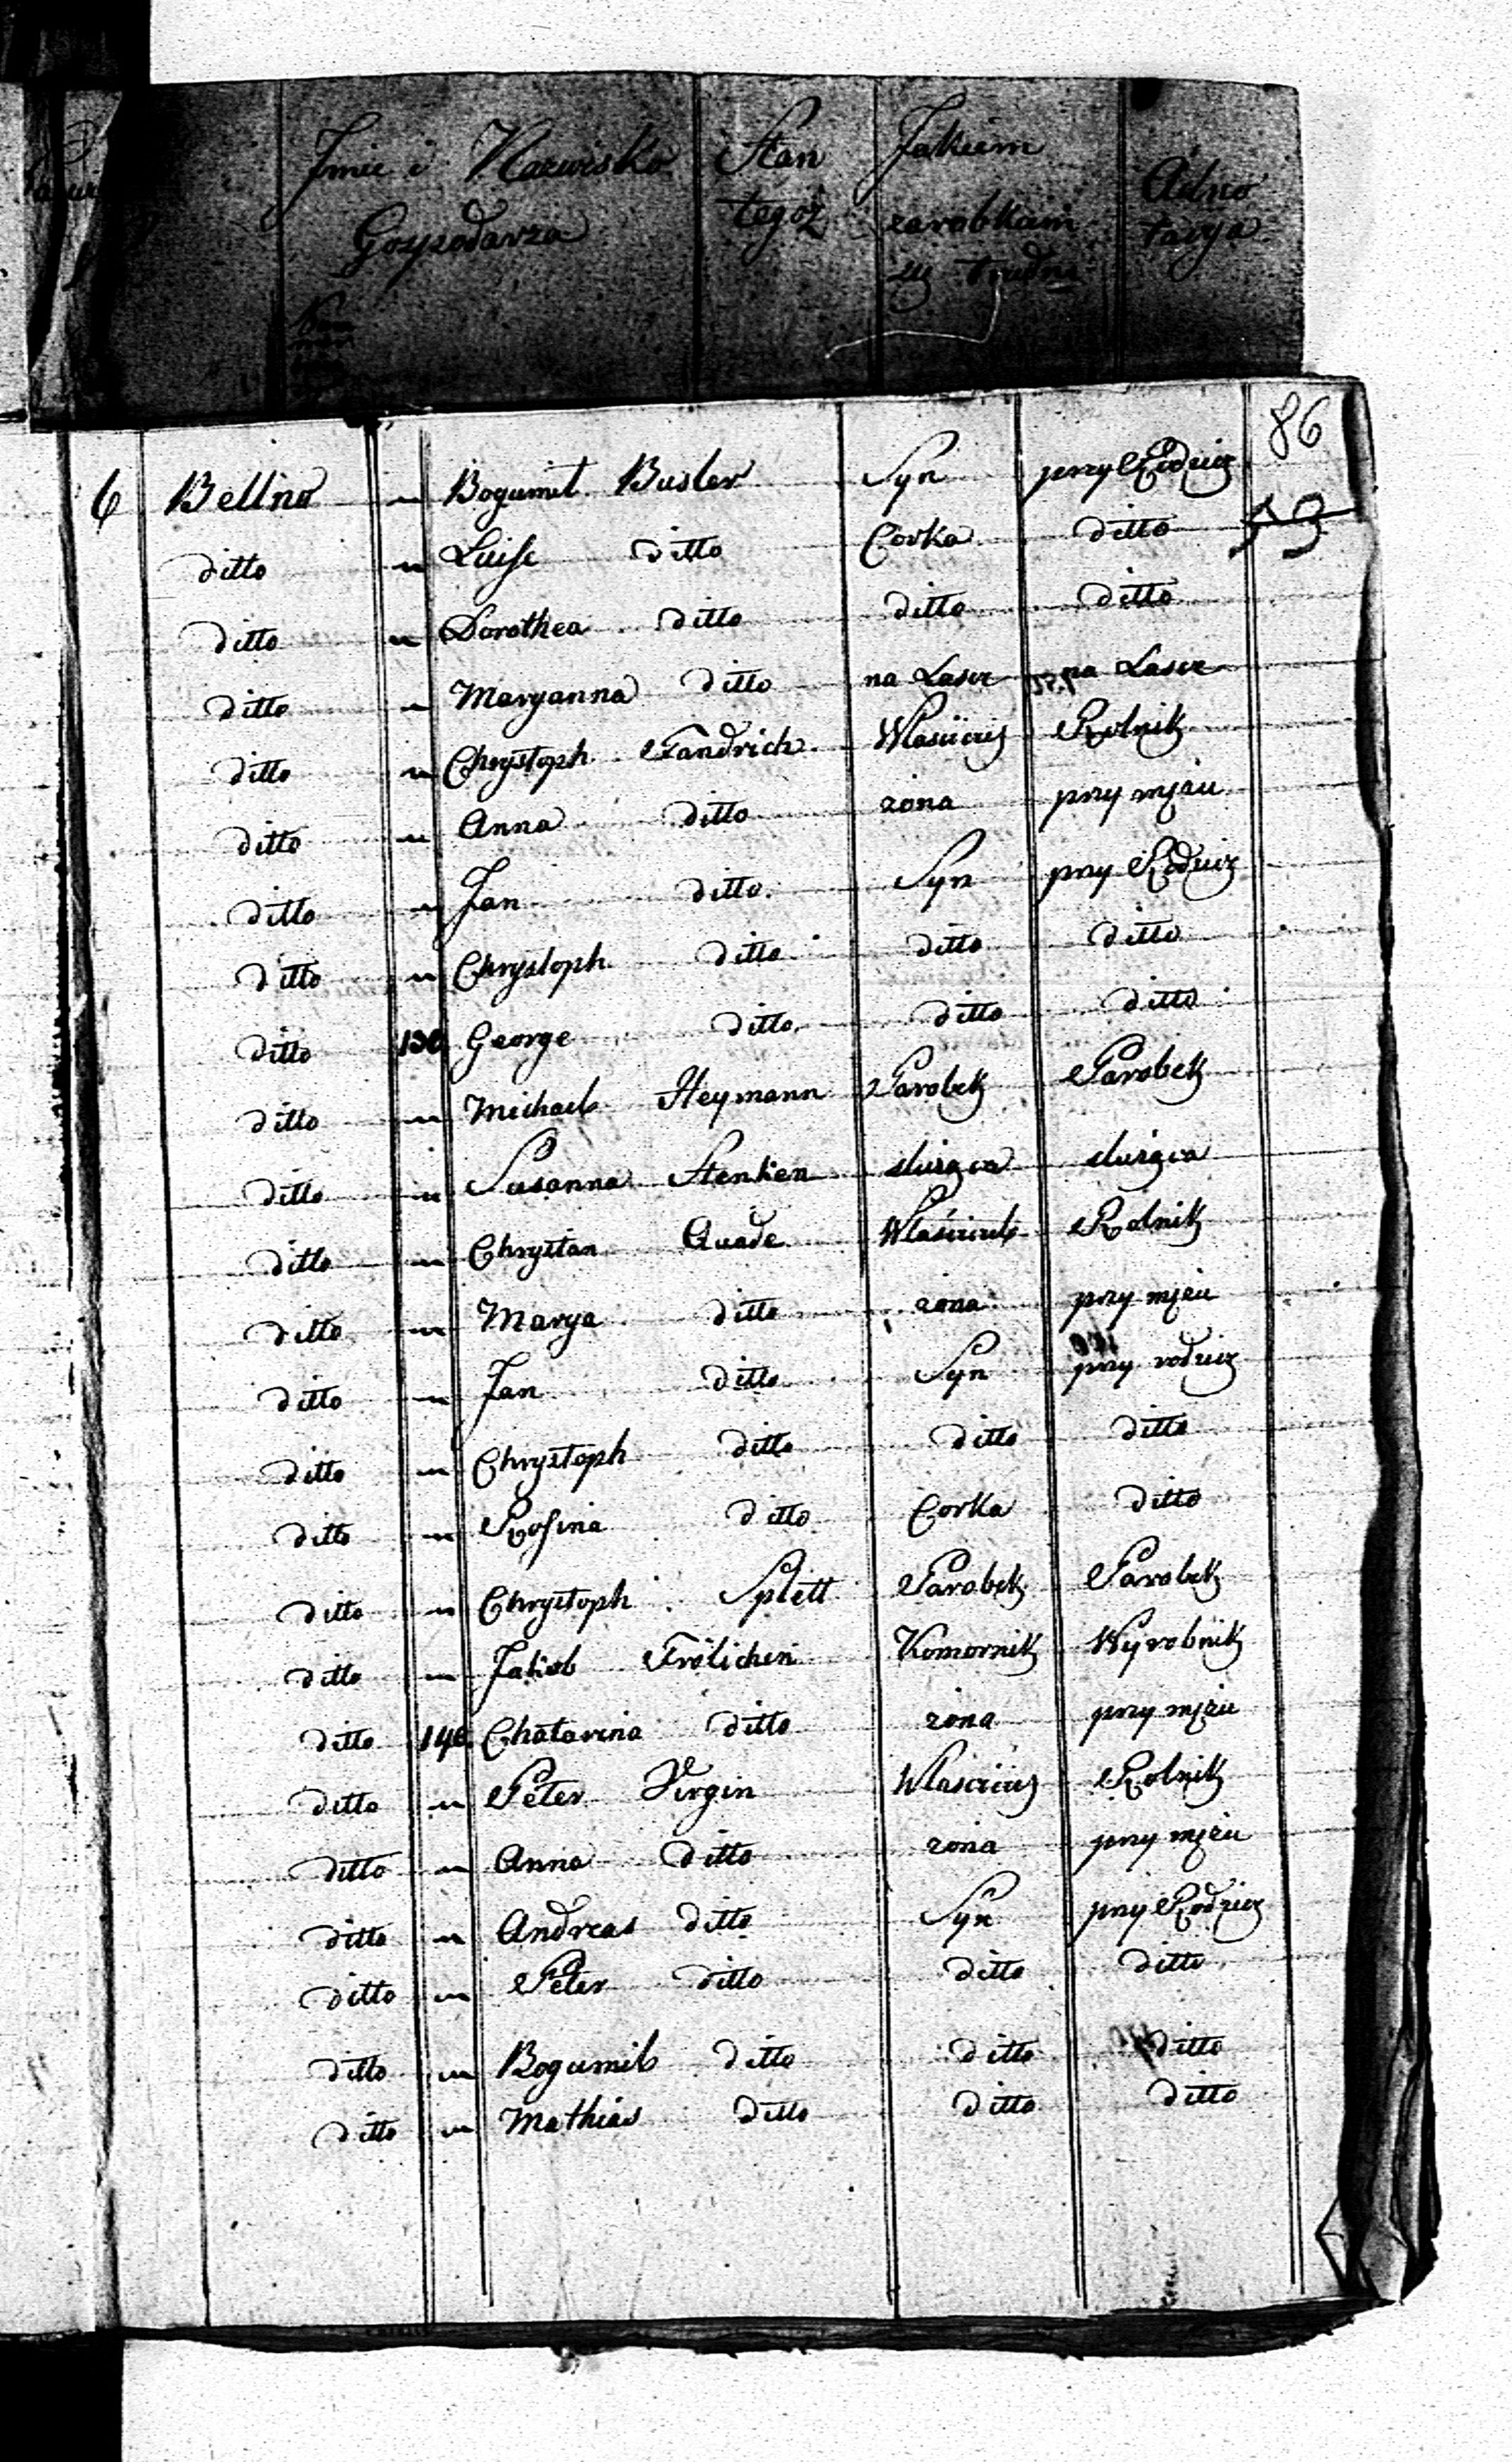 Imie i Nazwisko Stan Jakiem Adno
Gospodarza tegoż zarobkiem tacya
się trudni
86
6 Bellno " Bogumil Busler Syn przy Rodzicz
53
ditto " Luise ditto Corka ditto
ditto " Dorothea ditto ditto ditto
ditto " Maryanna ditto na Lasce na Lasce
ditto " Chrystoph Fandrich Właściciel Rolnik
ditto " Anna ditto zona przy mężu
ditto " Jan ditto Syn przy Rodzicz
ditto " Chrystoph ditto ditto ditto
ditto 130 George ditto ditto ditto
ditto " Michael Heymann Parobek Parobek
ditto " Susanna Stenken służąca służąca
ditto " Chrystan Quade Właściciel Rolnik
ditto " Marya ditto zona przy mężu
ditto " Jan ditto Syn przy rodzicz
ditto " Chrystoph ditto ditto ditto
ditto " Rosina ditto Corka ditto
ditto " Chrystoph Splett Parobek Parobek
ditto " Jakob Frölichen Komornik Wyrobnik
ditto 140 Chatarina ditto zona przy mężu
ditto " Peter Virgin Właściciel Rolnik
ditto " Anna ditto zona przy mężu
ditto " Andreas ditto Syn przy Rodzicz
ditto " Peter ditto ditto ditto
ditto " Bogumil ditto ditto ditto
ditto " Mathias ditto ditto ditto